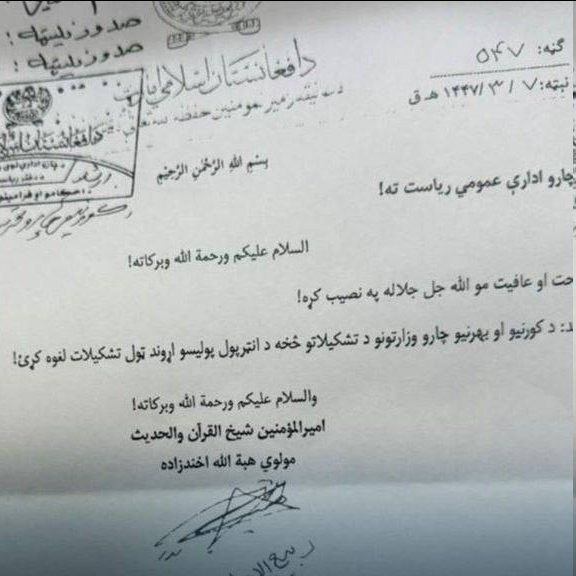 صدور نیټه:
صدور نیټه:
ګڼه: ۵۴۷
نېټه: ۷/ ۳/ ۱۴۴۷ هـ ق
د افغانستان اسلامي امارت
بِسْمِ اللهِ الرَّحْمٰنِ الرَّحِيْمِ
چارو ادارې عمومي ریاست ته!
السلام علیکم ورحمة الله وبرکاته!
حت او عافیت مو الله جل جلاله په نصیب کړه!
د: د کورنیو او بهرنیو چارو وزارتونو د تشکیلاتو څخه د انټرپول پولیسو اړوند ټول تشکیلات لغوه کړئ!
والسلام علیکم ورحمة الله وبرکاته!
امیرالمؤمنین شیخ القرآن والحدیث
مولوي هبة الله اخندزاده